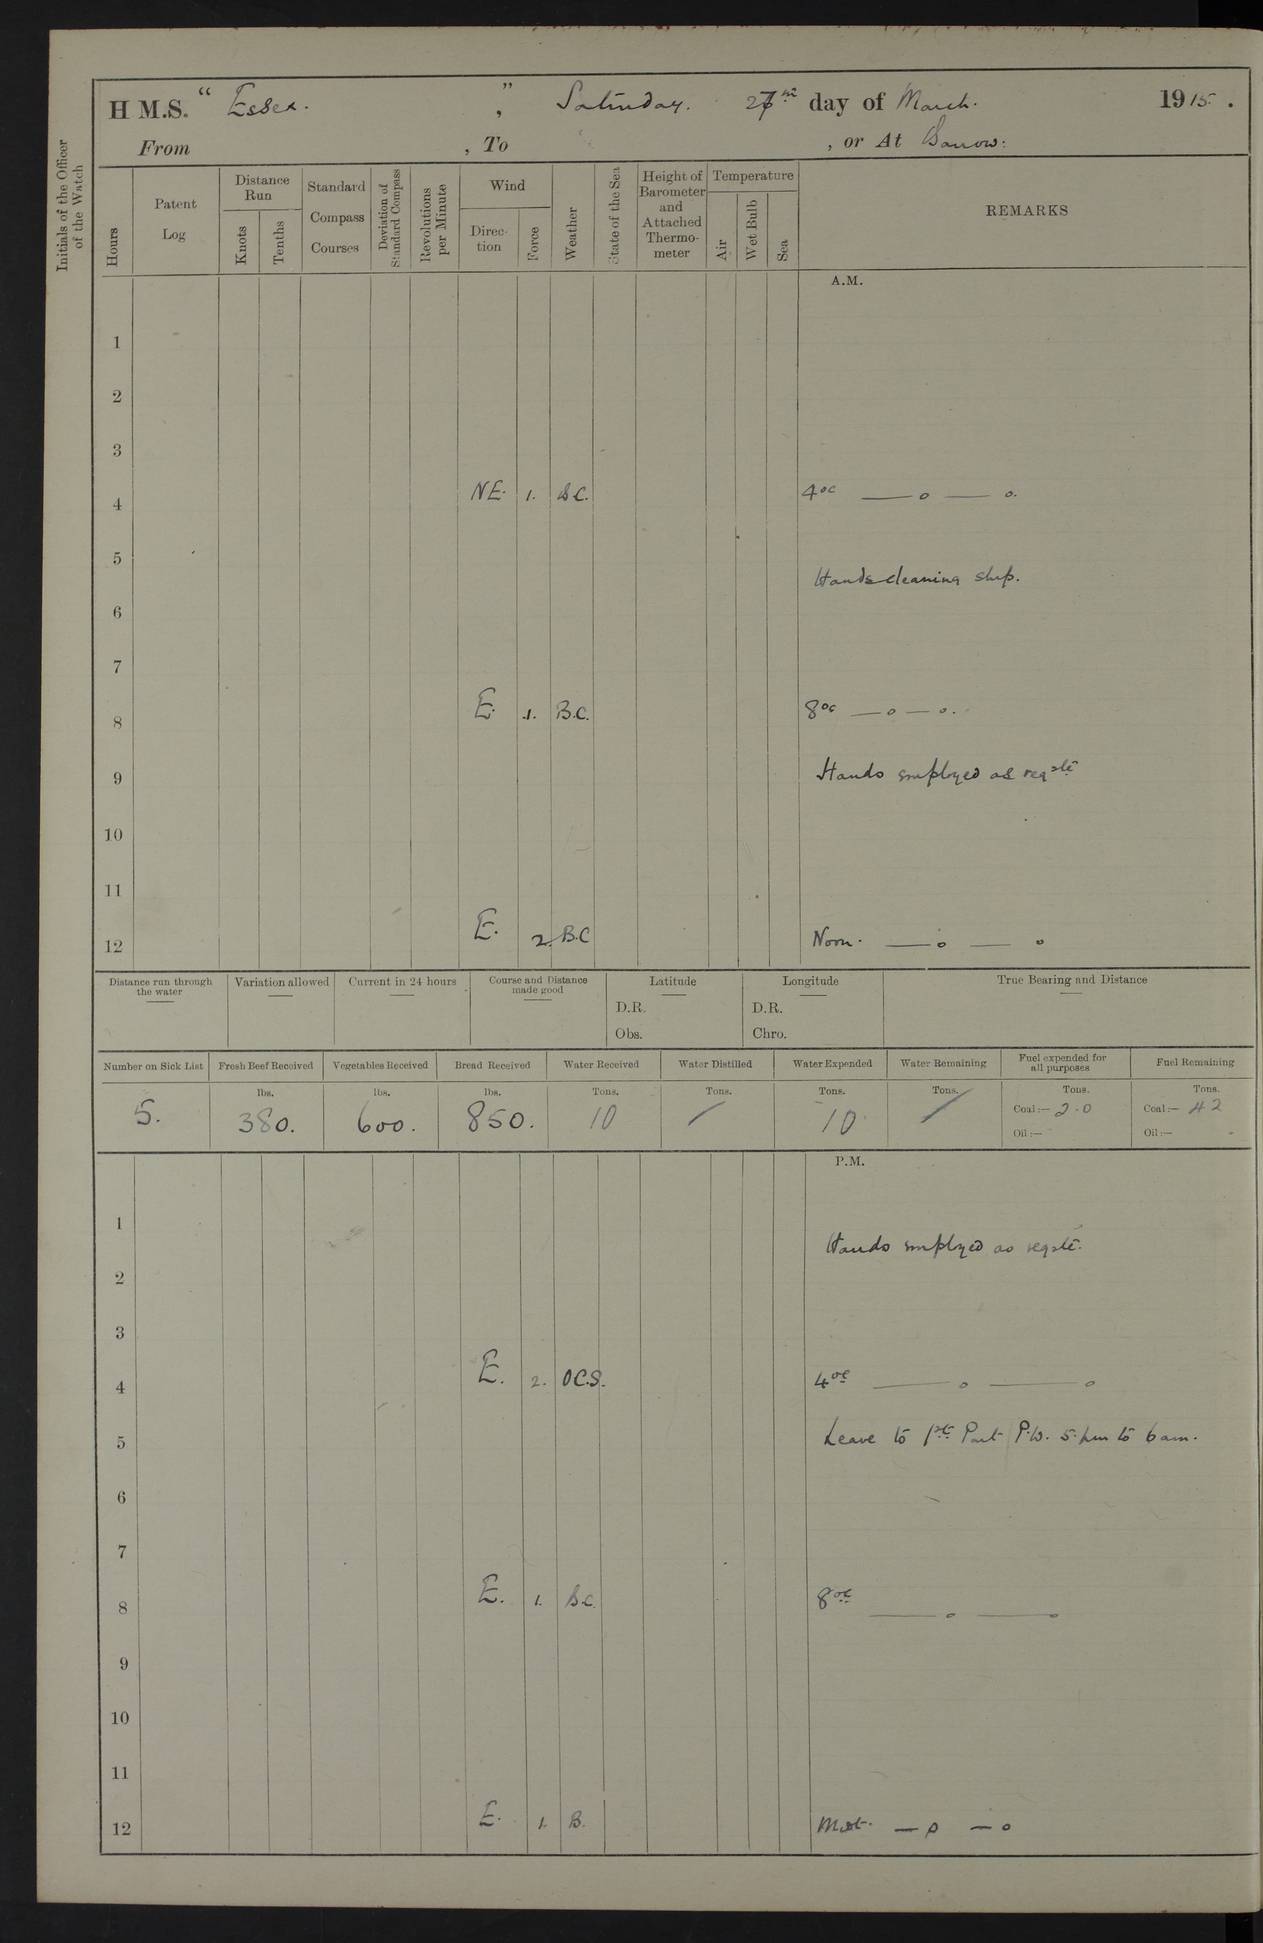 H M.S. “ Essex. ”, Saturday. 27th day of March. 1915.
From , To , or At Barrow:
Initials of the Officer of the Watch
Hours
Patent Log
Distance Run
Knots
Tenths
Standard Compass Courses
Deviation of Standard Compass
Revolutions per Minute
Wind
Direc-tion
Force
Weather
State of the Sea
Height of Barometer and Attached Thermo-meter
Temperature
Air
Wet Bulb
Sea
REMARKS
A.M.
1
2
3
4 NE. 1. B.C. 4oc — o — o.
5
Hands cleaning ship.
6
7
8 E. 1. B.C. 8oc — o — o.
9 Hands employed as reqste
10
11
12 E. 2. B.C Noon. — o — o
Distance run through the water
Variation allowed
Current in 24 hours
Course and Distance made good
Latitude
D.R.
Obs.
Longitude
D.R.
Chro.
True Bearing and Distance
Number on Sick List Fresh Beef Received Vegetables Received Bread Received Water Received Water Distilled Water Expended Water Remaining Fuel expended for all purposes Fuel Remaining
lbs. lbs. lbs. Tons. Tons. Tons. Tons. Tons. Tons.
5. 380. 600. 850. 10 / 10 / Coal :— 20 Coal :— 42
Oil :— Oil :— -
P.M.
1
Hands employed as reqste.
2
3
4 E. 2. O.C.S. 4oc — o — o
5 Leave to 1st Part P.W. 5. pm to 6 am.
6
7
8 E. 1. B.C. 8oc — o — o
9
10
11
12 E. 1. B. Mdt. — o — o